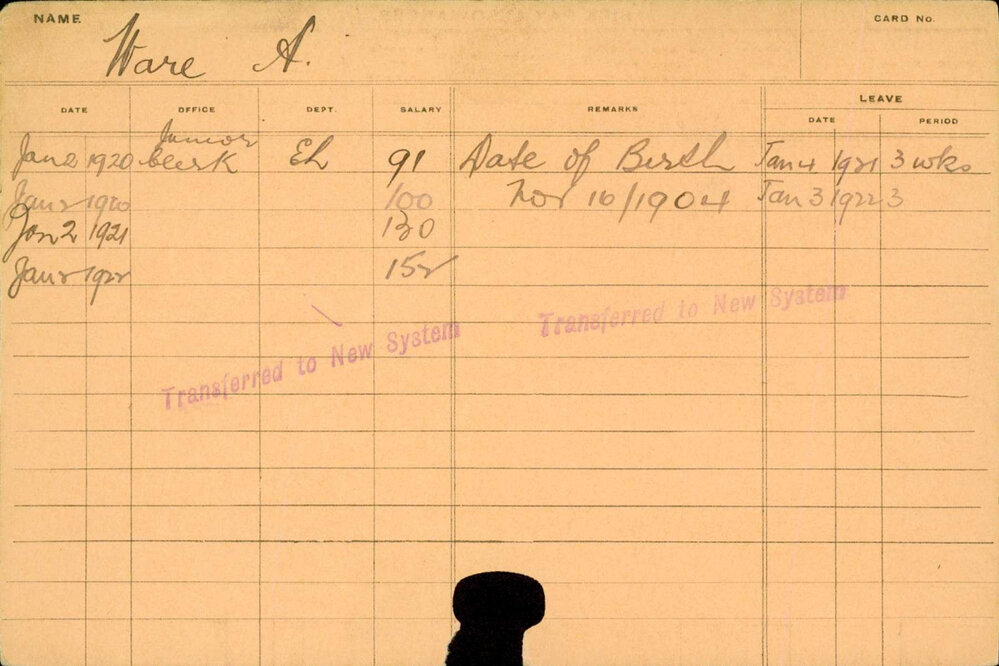 NAME
CARD No.
Ware A.
DATE OFFICE DEPT. SALARY REMARKS LEAVE
DATE PERIOD
Junior
Jan 2 1920 Clerk EL 91 Date of Birth Jan 4 1921 3 wks
Jan 2 1920 100 Nov 16/1904 Jan 3 1922 3
Jan 2 1921 130
Jan 2 1922 152
Transferred to New System
Transferred to New System